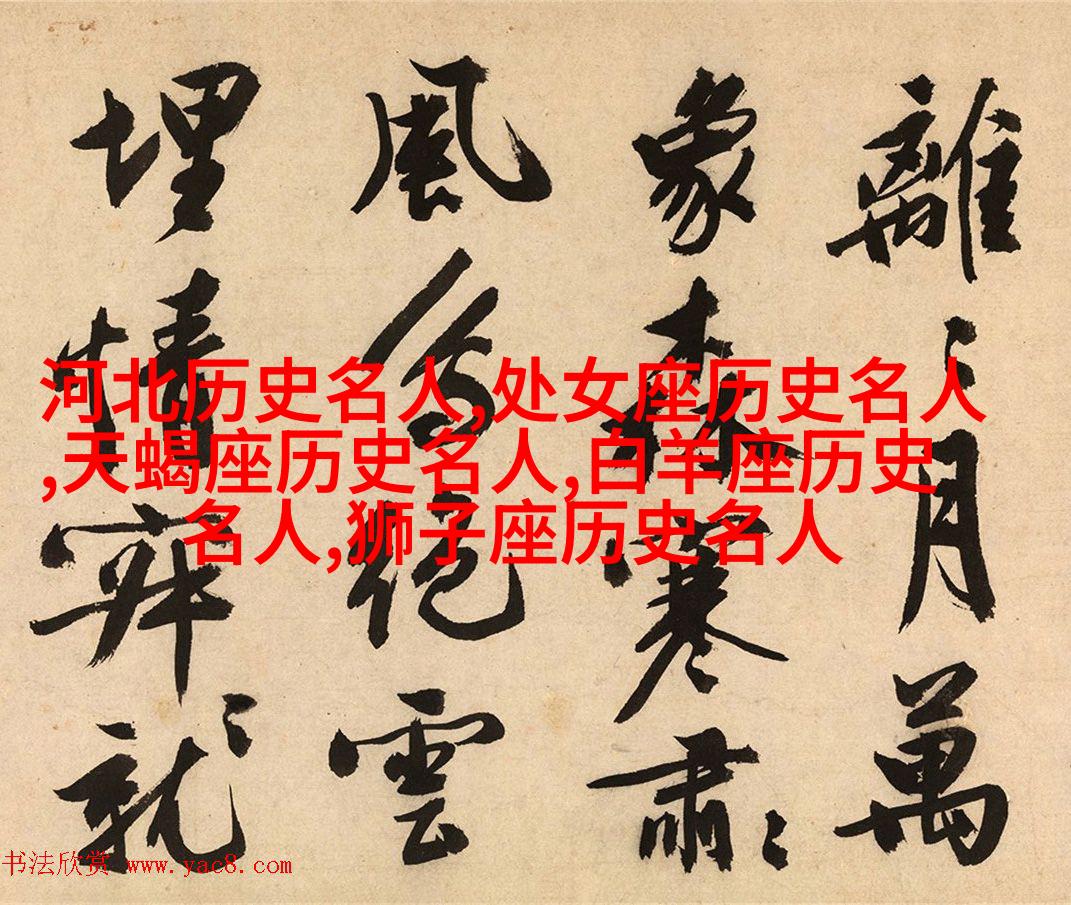 離〻月萬
象森寒肅〻
風絕雲
埋就
河北历史名人,处女座历史名人
,天蝎座历史名人,白羊座历史
名人,狮子座历史名人
书法欣赏 www.yac8.com